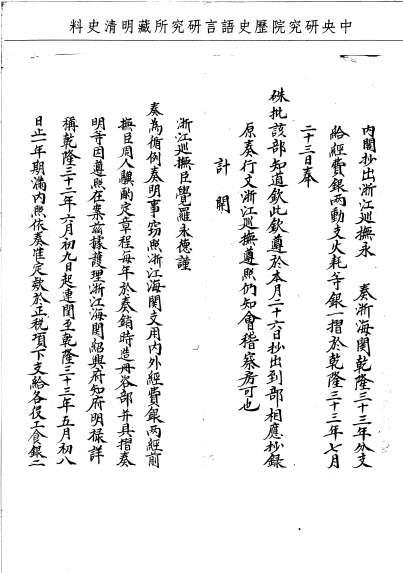 中央研究院歷史語言研究所藏明清史料
內閣抄出浙江巡撫永 奏浙海関乾隆三十三年分支
給經費銀兩動支火耗等銀一摺於乾隆三十三年七月
二十三日奉
硃批該部知道欽此欽遵於本月二十六日抄出到部相應抄錄
原奏行文浙江巡撫遵照仍知會稽察房可也
計開
浙江巡撫臣覺羅永德謹
奏為循例奏明事竊照浙江海関支用內外經費銀兩經前
撫臣周人驥酌定章程每年於奏銷時造冊咨部并具摺奏
明等因遵照在案茲據護理浙江海関紹興府知府明祿詳
稱乾隆三十二年六月初九日起連閏至乾隆三十三年五月初八
日止一年期滿內照依奏准定款於正稅項下支給各役工食銀二